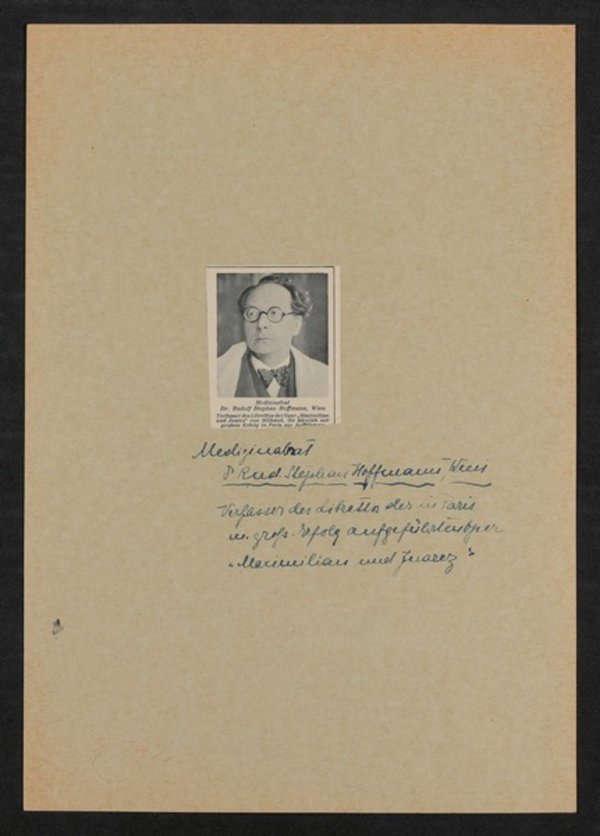 Medizinalrat
Dr. Rudolf Stephan Hoffmann, Wien
Verfasser des Librettos der Oper „Maximilian
und Juarez" von Milhaud, die kürzlich mit
großem Erfolg in Paris zur Aufführung
Medizinalrat
Dr Rud. Stephan Hoffmann, Wien
Verfasser des Librettos der in Paris
m. groß. Erfolg aufgeführten Oper
„Maximilian und Juarez"